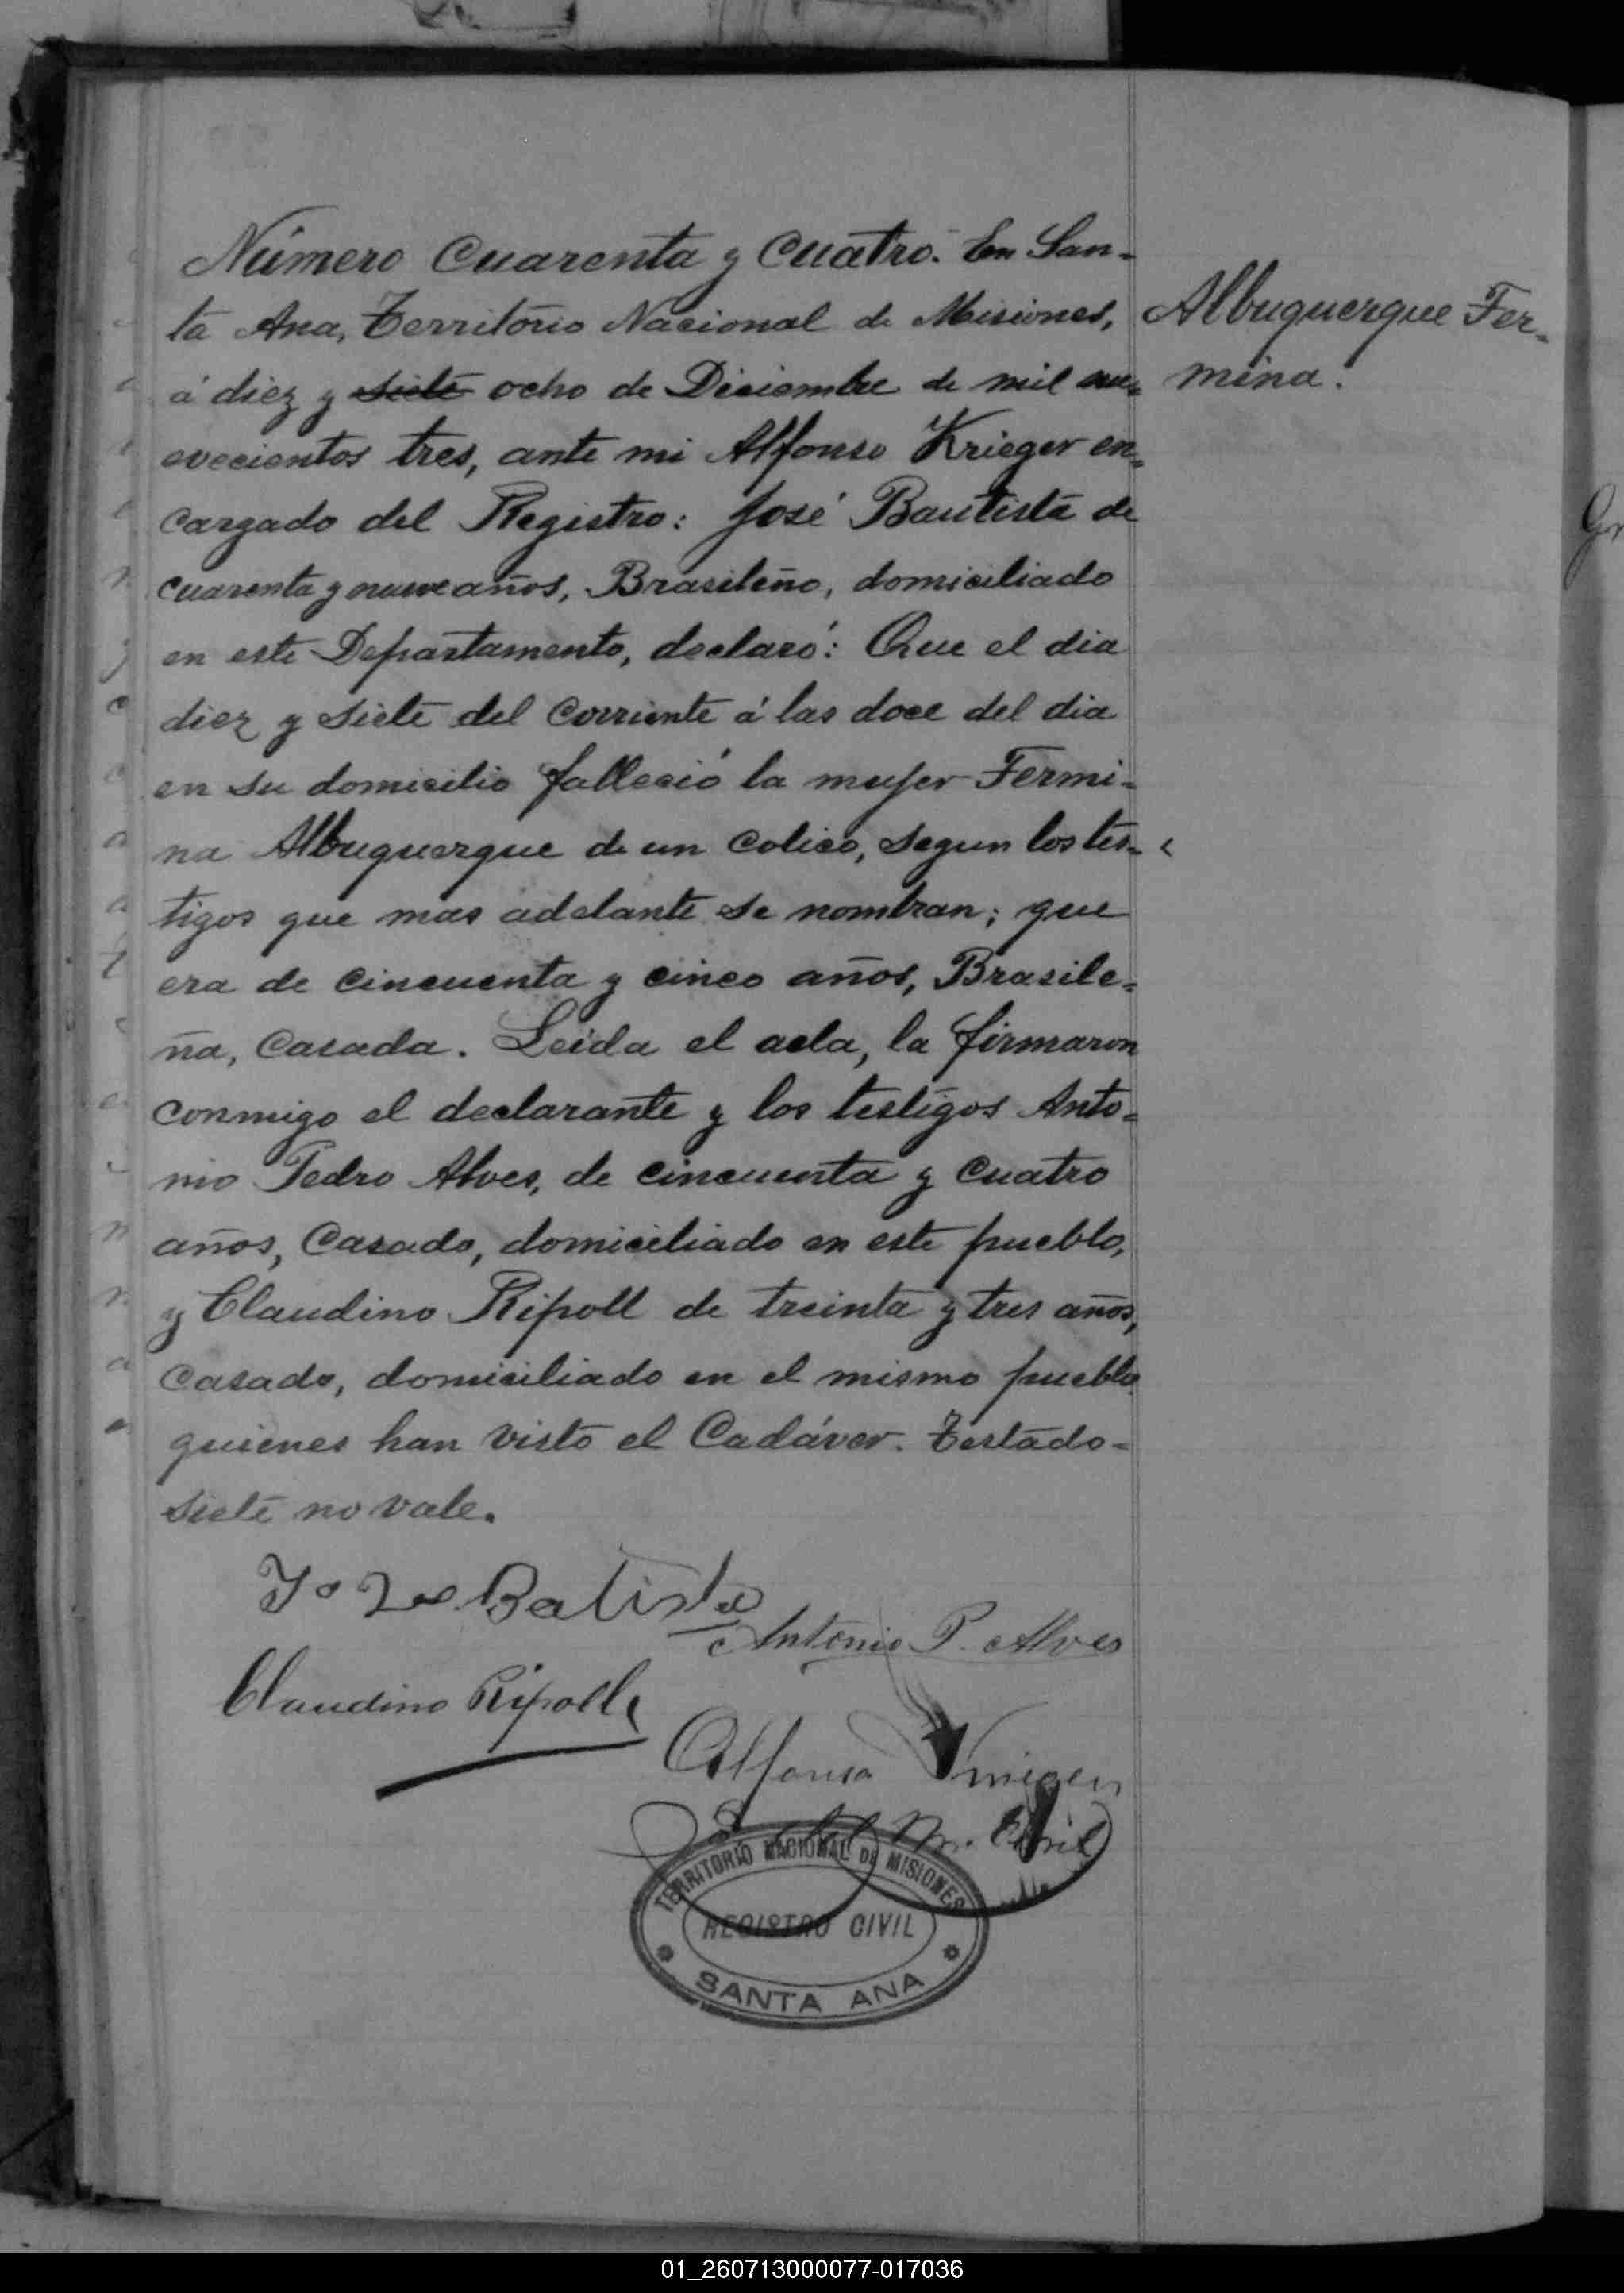 Número Cuarenta y Cuatro. En San-
ta Ana, Territorio Nacional de Misiones,
á diez y siete ocho de Diciembre de mil nu-
evecientos tres, ante mi Alfonso Krieger en-
cargado del Registro: José Bautista de
cuarenta y nueve años, Brasileño, domiciliado
en este Departamento, declaró: Que el dia
diez y siete del corriente á las doce del dia
en su domicilio falleció la mujer Fermi-
na Albuquerque de un colico, segun los tes-
tigos que mas adelante se nombran; que
era de cincuenta y cinco años, Brasile-
ña, Casada. Leida el acta, la firmaron
conmigo el declarante y los testigos Anto-
nio Pedro Alves, de cincuenta y cuatro
años, Casado, domiciliado en este pueblo,
y Claudino Ripoll de treinta y tres años,
casado, domiciliado en el mismo pueblo
quienes han visto el Cadáver. Testado-
siete no vale.
Albuquerque Fer-
mina.
Joze Batista
Antonio P. Alves
Claudino Ripoll
Alfonso Krieger
TERRITORIO NACIONAL DE MISIONES
REGISTRO CIVIL
SANTA ANA
01_260713000077-017036